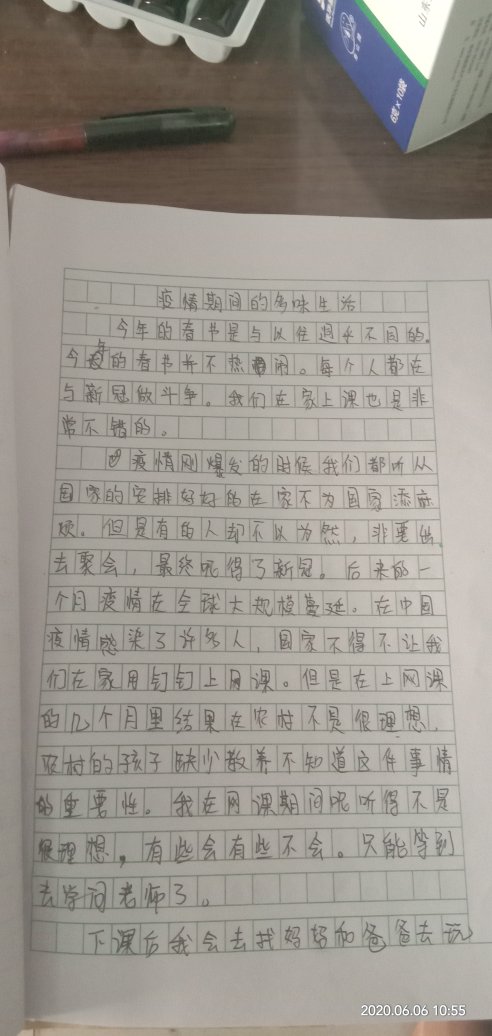 6克×10袋
疫情期间的多味生活
今年的春节是与以往过年不同的。
今年的春节并不热闹。每个人都在
与新冠做斗争。我们在家上课也是非
常不错的。
疫情刚爆发的时候我们都听从
国家的安排好好的在家不为国家添麻
烦。但是有的人却不以为然，非要出
去聚会，最终呢得了新冠。后来的一
个月疫情在全球大规模蔓延。在中国
疫情感染了许多人，国家不得不让我
们在家用钉钉上网课。但是在上网课
的几个月里结果在农村不是很理想，
农村的孩子缺少教养不知道这件事情
的重要性。我在网课期间呢听得不是
很理想，有些会有些不会。只能等到
去学问老师了。
下课后我会去找妈妈和爸爸去玩
2020.06.06 10:55